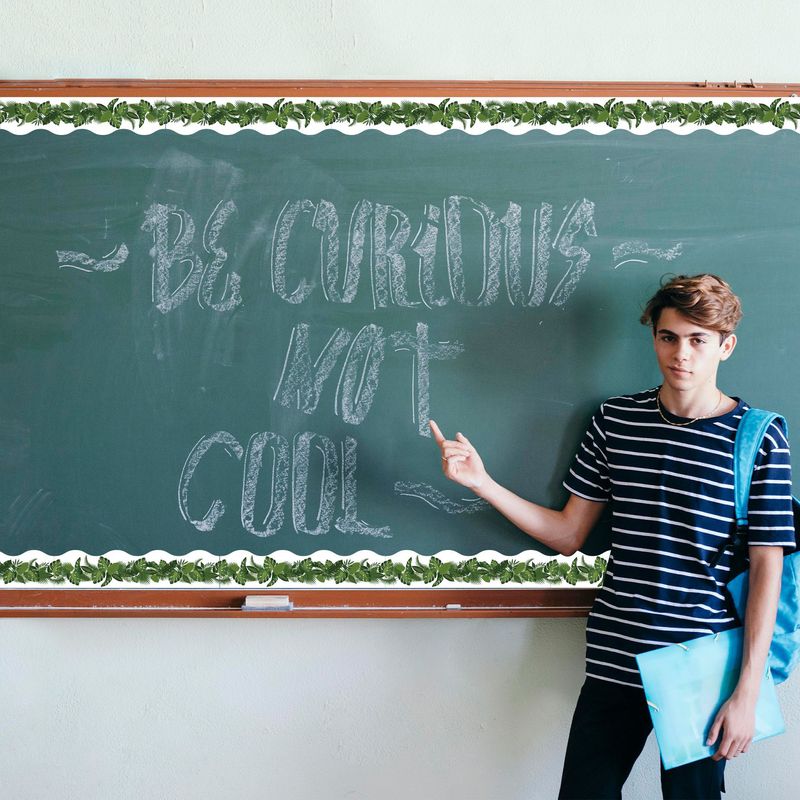 ~ BE CURiOUS ~
NOt
COOL ~